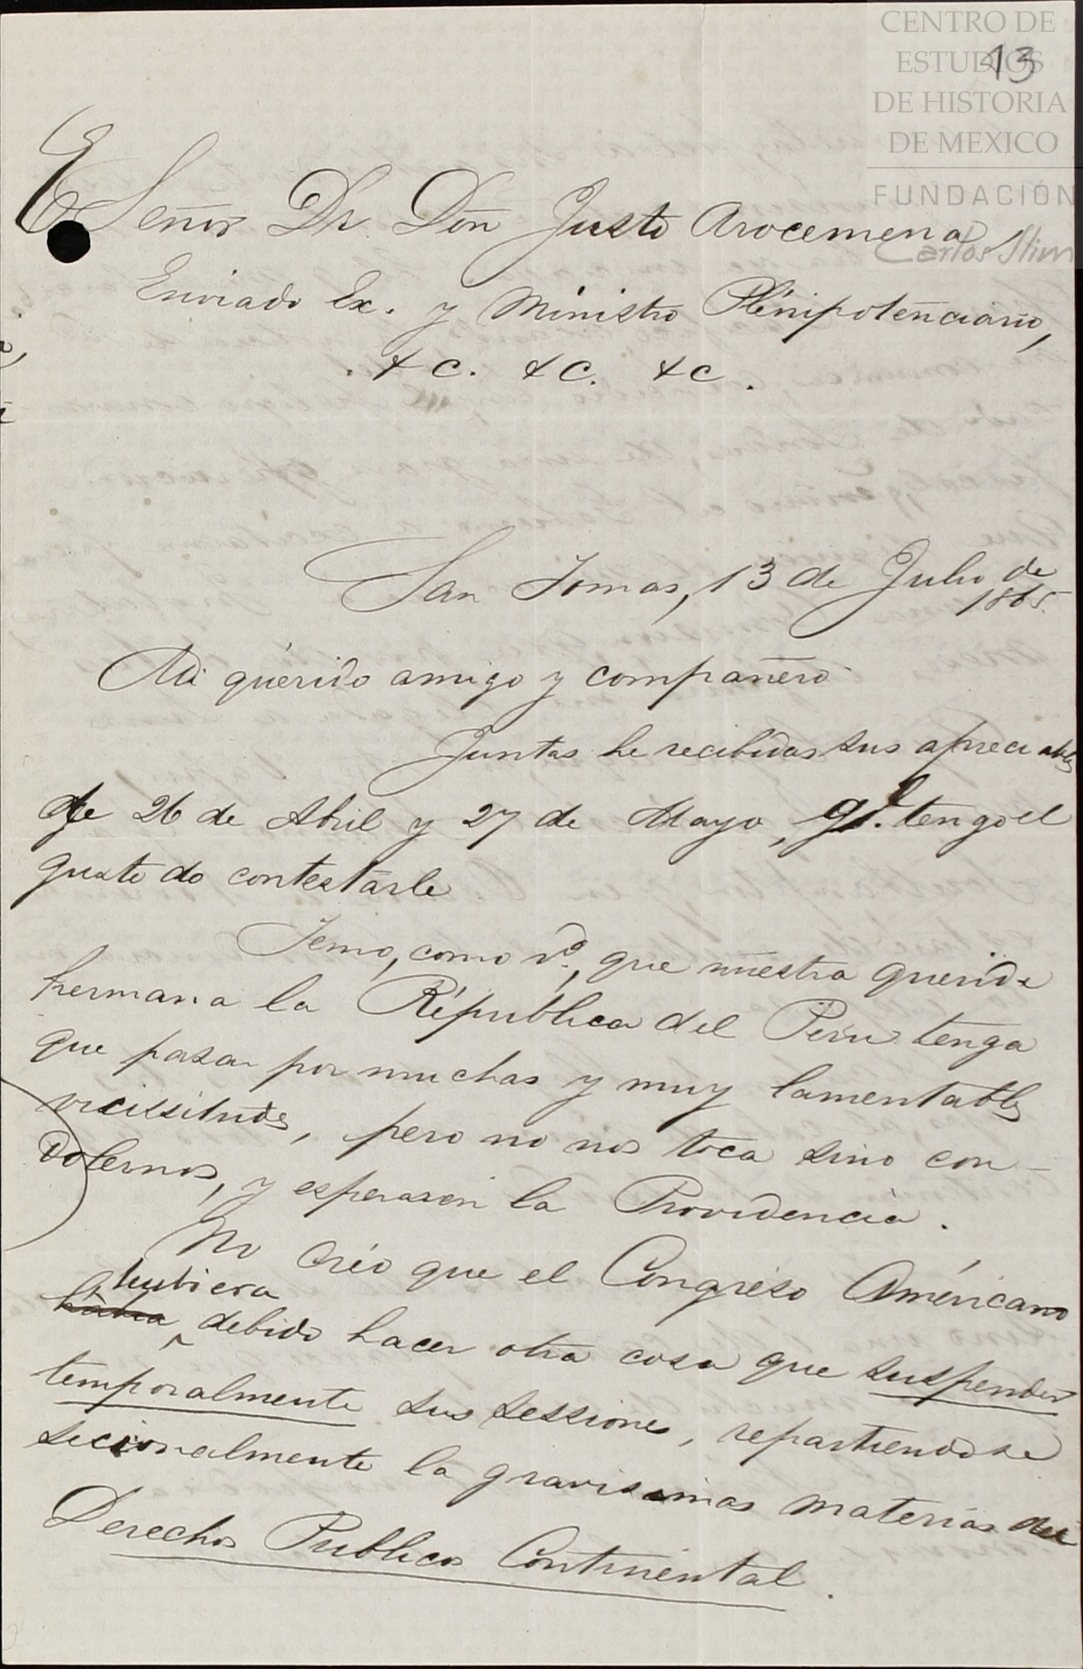 CENTRO DE
ESTUDIOS
DE HISTORIA
DE MEXICO
FUNDACIÓN
Carlos Slim
13
E. Señor Dr. Dōn Justo Arocemena,
Enviado Ex. y Ministro Plenipotenciario,
&c. &c. &c.
San Tomas, 13 de Julio de
1865.
Mi querido amigo y compañero
Juntas he recibidas sus apreciables
de 26 de Abril y 27 de Mayo, q.l tengo el
gusto do contestarle
Temo, como Vd., que nuestra querida
hermana la República del Peru tenga
que pasar por muchas y muy lamentables
vicissitudes, pero no nos toca sino con-
dolernos, y esperar en la Providencia.
No créo que el Congreso Américano
hubiera
habia debido hacer otra cosa que suspender
temporalmente sus sessiones, repartiendose
seccionalmente la gravisimas materias del
Derechos Publicos Continental.